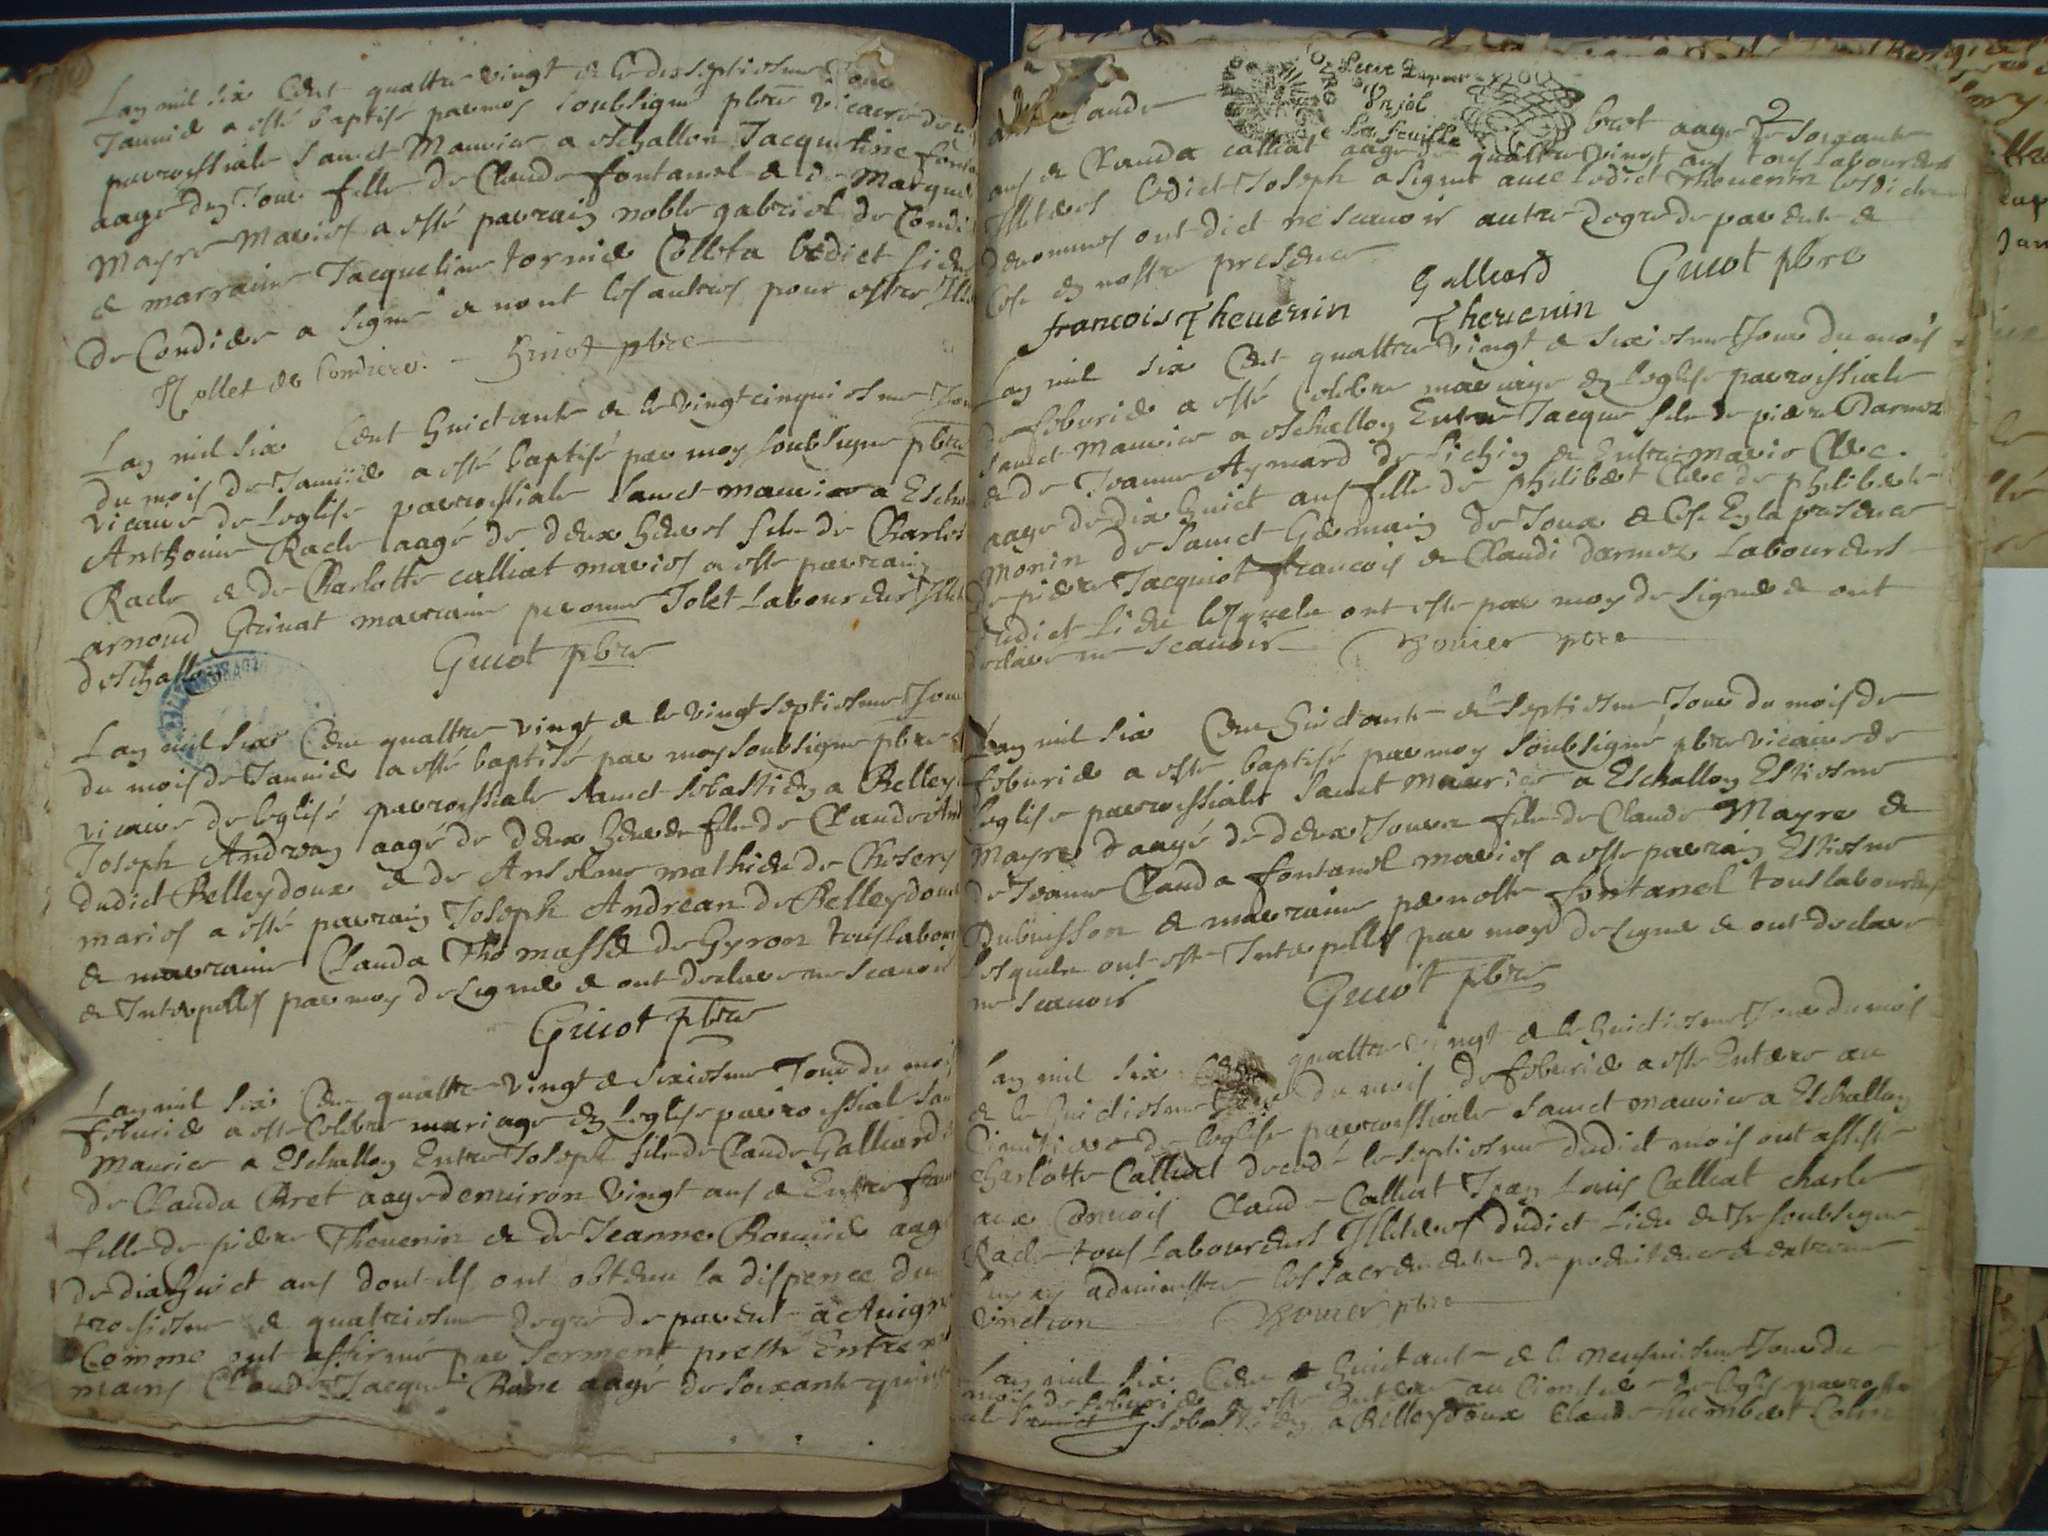 Lan mil six Cent quattre vingt & le dixseptiesme Jour
Januier a esté baptisé par moy soubsigne pbre vicaire de
parrossiale Sainct Maurice a eschallon Jacqueline fonta
aagé dun Jour fille de Claude fontanel & de Marguer
Mayre Mariés a esté parrain noble gabriel de Condi
& marraine Jacqueline tornier Colleta ledict sieur
de Condiere a signé & nont les autres pour estre Ille
Rollet de Condiere. Guiot pbre
Lan mil six Cent huictante & le vingtcinquiesme Jour
du mois de Januier a esté baptisé par moy soubsigne pbre
vicaire de leglise parrossiale Sainct maurice a Escha
Anthoine Racle aagé de deux heures fils de Charles
Racle & de Charlotte calliat mariés a esté parrain
arnoud Grinat marraine peronne Jolet Laboureurs Illet
deschallon Guiot pbre
Lan mil six Cent quattre vingt & le vingtseptiesme Jour
du mois de Januier a esté baptisé par moy soubsigne pbre
vicaire de leglise parrossiale Sainct sebastien a Belley
Joseph Andrean aagé de deux heures fils de Claude And
dudict Belleydoux & de Anselme mathieu de Chosery
mariés a esté parrain Joseph Andrean de Belleydoux
& marraine Clauda Thomasset de Gyron tous labour
& Interpellés par moy de signer & ont declaré ne scauoir
Guiot pbre
Lan mil six Cent quattre vingt & sixiesme Jour du mois
feburier a esté Celebré mariage en leglise parroissiale Sain
Maurice a Eschallon Entre Joseph fils de Claude Galliard &
de Clauda Bret aagé denuiron vingt ans & Entre fran
fille de pierre Theuenin & de Jeanne Bouuier aagé
de dixhuict ans dont ils ont obtenu la dispence du
troisiesme & quatriesme degré de parent a Auign
Comme ont affirmé par serment presté Entre m
mains Claude Jacques Bane aagé de soixante quinze
Claude bret aagé de soixante
2
ans & Clauda calliat aagé de quattre vingt ans tous Laboureurs
Illeteres ledict Joseph a signé auec ledict Theuenin lesdicts
denommes ont dict ne scauoir autre degré de parenté &
Ce en nostre presence
Galliard Guiot pbre
francois Theuenin Theuenin
Lan mil six Cent quattre vingt & sixiesme Jour du mois
de feburier a esté Celebré mariage en leglise parroissiale
Sainct Maurice a eschallon Entre Jacques fils de pierre Darmez
& de Jeanne Aymard de Sichin & Entre marie Clerc
aagé de dix huict ans fille de philibert Clerc de philiberte
Monin de Sainct Germain de Joux & Ce En la presence
de pierre Jacquiot francois & Claudi Darmez Laboureurs
dudict Lieu lesquels ont esté par moy de signer & ont
declaré ne scauoir Bouuier pbre
Lan mil six Cent huictante & septiesme Jour du mois de
feburier a esté baptisé par moy soubsigné pbre vicaire de
leglise parrossiale Sainct Maurice a Eschallon Estiesne
Mayre daagé de deux Jours fils de Claude Mayre &
de Jeanne Clauda fontanel mariés a esté parrain Estiesne
Dubuisson & marraine pernette fontanel tous laboureurs
lesquels ont esté Interpellés par moy de signer & ont declaré
ne scauoir Guiot pbre
Lan mil six Cent quattre vingt & le huictiesme Jour du mois
& le huictiesme Jour du mois de feburier a esté Enterré au
Cimetiere de leglise parrossiale Sainct maurice a Eschallon
charlotte Calliat decedé le septiesme dudict mois ont assisté
aux Conuois Claude Calliat Jean Louis Calliat charle
Racle tous Laboureurs Illeteres dudict Lieu & Je soubsigne
luy ay administré les sacrements de penitence & extreme
Onction Bouuier pbre
Lan mil six Cent huictante & le neufuiesme Jour du
mois de feburier a esté Enterré au Cimetiere de leglise parrossi
ale Sainct Sebastien a Belleydoux Claude humbert Colin